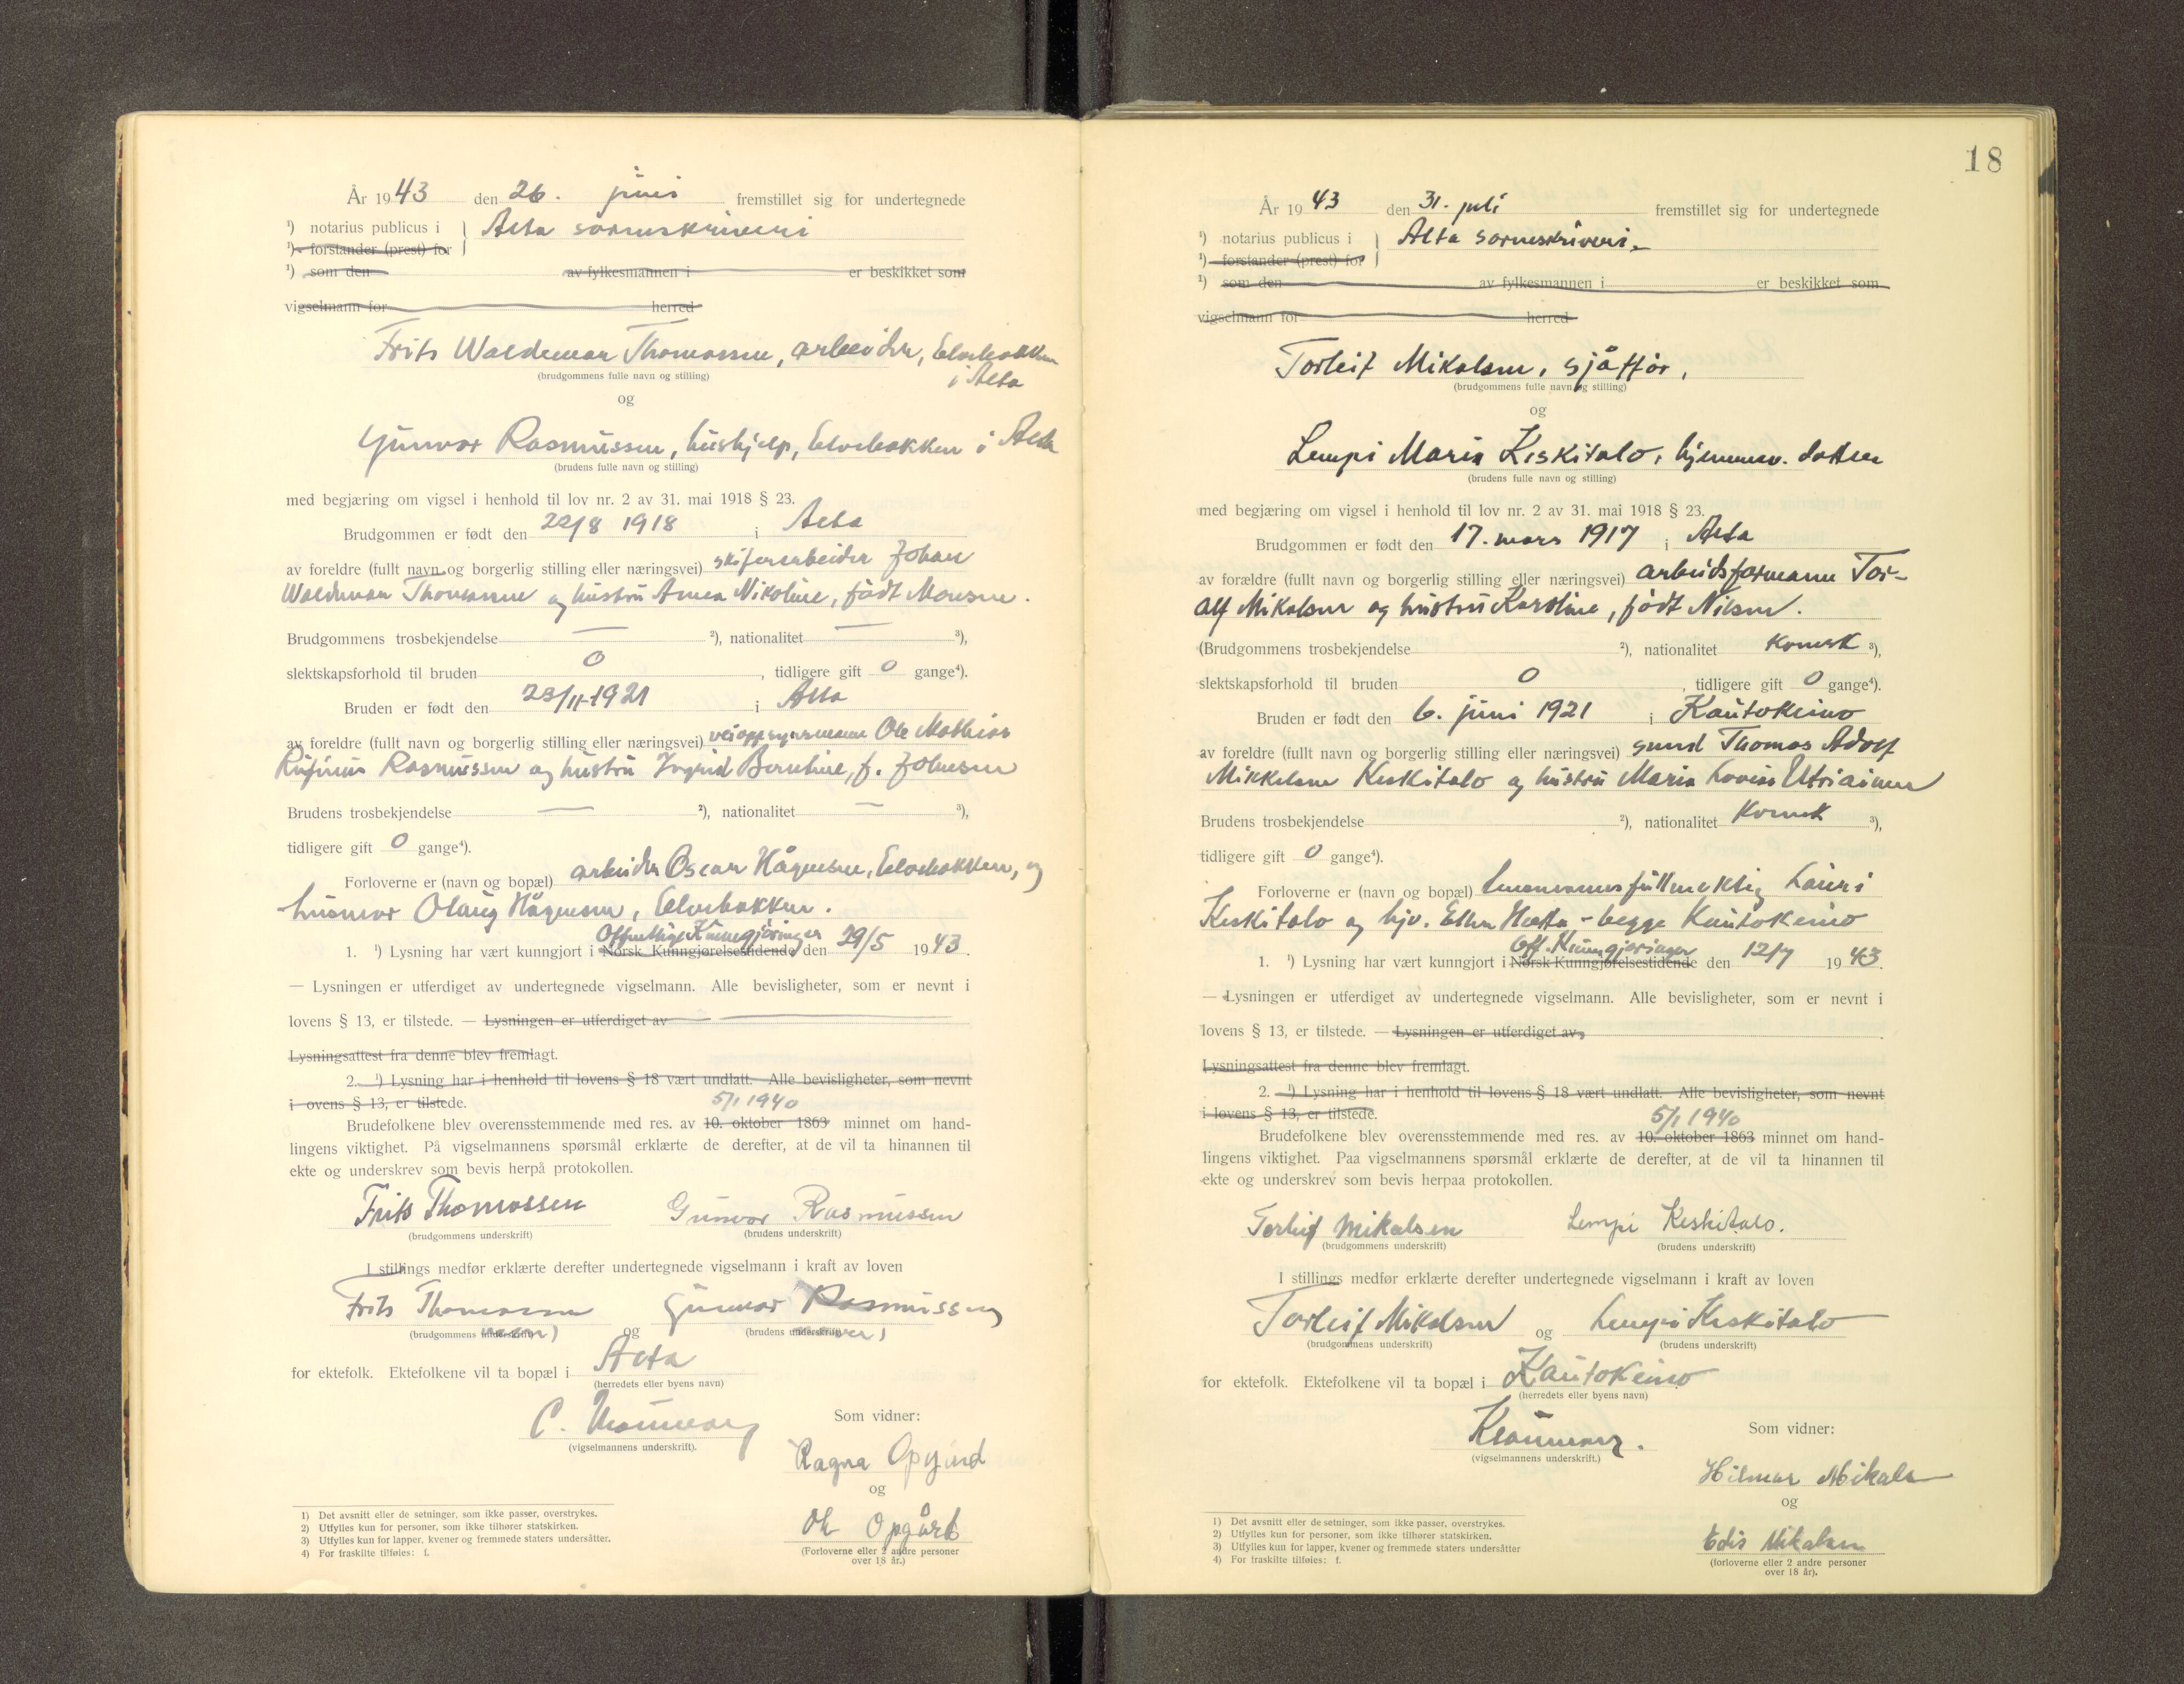 År 1943 den 26. juni fremstillet sig for undertegnede
¹) notarius publicus i } Alta sorenskriveri
¹) forstander (prest) for
¹) som den av fylkesmannen i er beskikket som
vigselmann for herred
Frits Waldemar Thomassen, arbeider, Elvebakken
i Alta
(brudgommens fulle navn og stilling)
og
Gunvor Rasmussen, hushjelp, Elvebakken i Alta
(brudens fulle navn og stilling)
med begjæring om vigsel i henhold til lov nr. 2 av 31. mai 1918 § 23.
Brudgommen er født den 22/8 1918 i Alta
av foreldre (fullt navn og borgerlig stilling eller næringsvei) skiferarbeider Johan
Waldemar Thomassen og hustru Anna Nikoline, født Monsen.
Brudgommens trosbekjendelse — ²), nationalitet — ³),
slektskapsforhold til bruden 0, tidligere gift 0 gange⁴).
Bruden er født den 23/11-1921 i Alta
av foreldre (fullt navn og borgerlig stilling eller næringsvei) veioppsynsmann Ole Mathias
Rufinus Rasmussen og hustru Ingrid Bernhine, f. Johnsen
Brudens trosbekjendelse — ²), nationalitet — ³),
tidligere gift 0 gange⁴).
Forloverne er (navn og bopæl) arbeider Oscar Hågensen, Elvebakken, og
husmor Olaug Hågensen, Elvebakken.
Offentlige Kunngjøringer
1. ¹) Lysning har vært kunngjort i Norsk Kunngjørelsestidende den 29/5 1943.
— Lysningen er utferdiget av undertegnede vigselmann. Alle bevisligheter, som er nevnt i
lovens § 13, er tilstede. — Lysningen er utferdiget av
Lysningsattest fra denne blev fremlagt.
2. ¹) Lysning har i henhold til lovens § 18 vært undlatt. Alle bevisligheter, som nevnt
i ovens § 13, er tilstede.
5/1 1940
Brudefolkene blev overensstemmende med res. av 10. oktober 1863 minnet om hand-
lingens viktighet. På vigselmannens spørsmål erklærte de derefter, at de vil ta hinannen til
ekte og underskrev som bevis herpå protokollen.
Frits Thomassen Gunvor Rasmussen
(brudgommens underskrift) (brudens underskrift)
I stillings medfør erklærte derefter undertegnede vigselmann i kraft av loven
Frits Thomassen og Gunvor Rasmussen
(brudgommens underskrift navn) (brudens underskrift navn)
for ektefolk. Ektefolkene vil ta bopæl i Alta
(herredets eller byens navn)
C.
(vigselmannens underskrift).
Som vidner:
Ragna Opgård
og
Ole Opgård
(Forloverne eller 2 andre personer
over 18 år.)
1) Det avsnitt eller de setninger, som ikke passer, overstrykes.
2) Utfylles kun for personer, som ikke tilhører statskirken.
3) Utfylles kun for lapper, kvener og fremmede staters undersåtter.
4) For fraskilte tilføies: f.
18
År 1943 den 31. juli fremstillet sig for undertegnede
¹) notarius publicus i } Alta sorenskriveri
¹) forstander (prest) for
¹) som den av fylkesmannen i er beskikket som
vigselmann for herred
Torleif Mikalsen, sjåfför,
(brudgommens fulle navn og stilling)
og
Lempi Maria Keskitalo, hjemmev. datter
(brudens fulle navn og stilling)
med begjæring om vigsel i henhold til lov nr. 2 av 31. mai 1918 § 23.
Brudgommen er født den 17. mars 1917 i Alta
av forældre (fullt navn og borgerlig stilling eller næringsvei) arbeidsformann Tor-
alf Mikalsen og hustru Karoline, født Nilsen.
(Brudgommens trosbekjendelse ²), nationalitet kvensk ³),
slektskapsforhold til bruden 0, tidligere gift 0 gange⁴).
Bruden er født den 6. juni 1921 i Kautokeino
av foreldre (fullt navn og borgerlig stilling eller næringsvei) smed Thomas Adolf
Mikkelsen Keskitalo og hustru Maria Lovisa Utriainen
Brudens trosbekjendelse ²), nationalitet Kvensk ³),
tidligere gift 0 gange⁴).
Forloverne er (navn og bopæl) lensmannsfullmektig Lauri
Keskitalo og hjv. Ellen Hætta - begge Kautokeino
Off. Kunngjøringer
1. ¹) Lysning har vært kunngjort i Norsk Kunngjørelsestidende den 12/7 1943.
— Lysningen er utferdiget av undertegnede vigselmann. Alle bevisligheter, som er nevnt i
lovens § 13, er tilstede. — Lysningen er utferdiget av
Lysningsattest fra denne blev fremlagt.
2. ¹) Lysning har i henhold til lovens § 18 vært undlatt. Alle bevisligheter, som nevnt
i lovens § 13, er tilstede.
5/1 1940
Brudefolkene blev overensstemmende med res. av 10. oktober 1863 minnet om hand-
lingens viktighet. Paa vigselmannens spørsmål erklærte de derefter, at de vil ta hinannen til
ekte og underskrev som bevis herpaa protokollen.
Torleif Mikalsen Lempi Keskitalo.
(brudgommens underskrift) (brudens underskrift)
I stillings medfør erklærte derefter undertegnede vigselmann i kraft av loven
Torleif Mikalsen og Lempi Keskitalo
(brudgommens underskrift) (brudens underskrift)
for ektefolk. Ektefolkene vil ta bopæl i Kautokeino
(herredets eller byens navn)
(vigselmannens underskrift.)
Som vidner:
Hilmar Mikals
og
Edis Mikalsen
(forloverne eller 2 andre personer
over 18 år).
1) Det avsnitt eller de setninger, som ikke passer, overstrykes.
2) Utfylles kun for personer, som ikke tilhører statskirken.
3) Utfylles kun for lapper, kvener og fremmede staters undersåtter
4) For fraskilte tilføies: f.